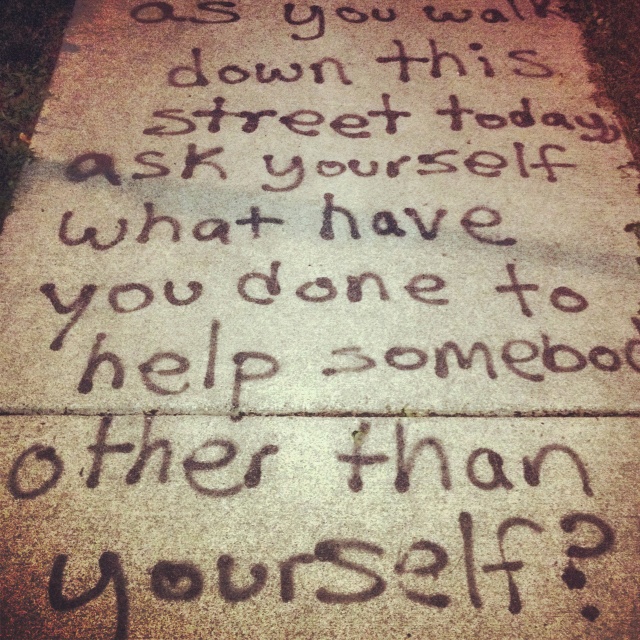 as you walk
down this
street today,
ask yourself
what have
you done to
help somebod
other than
yourself?